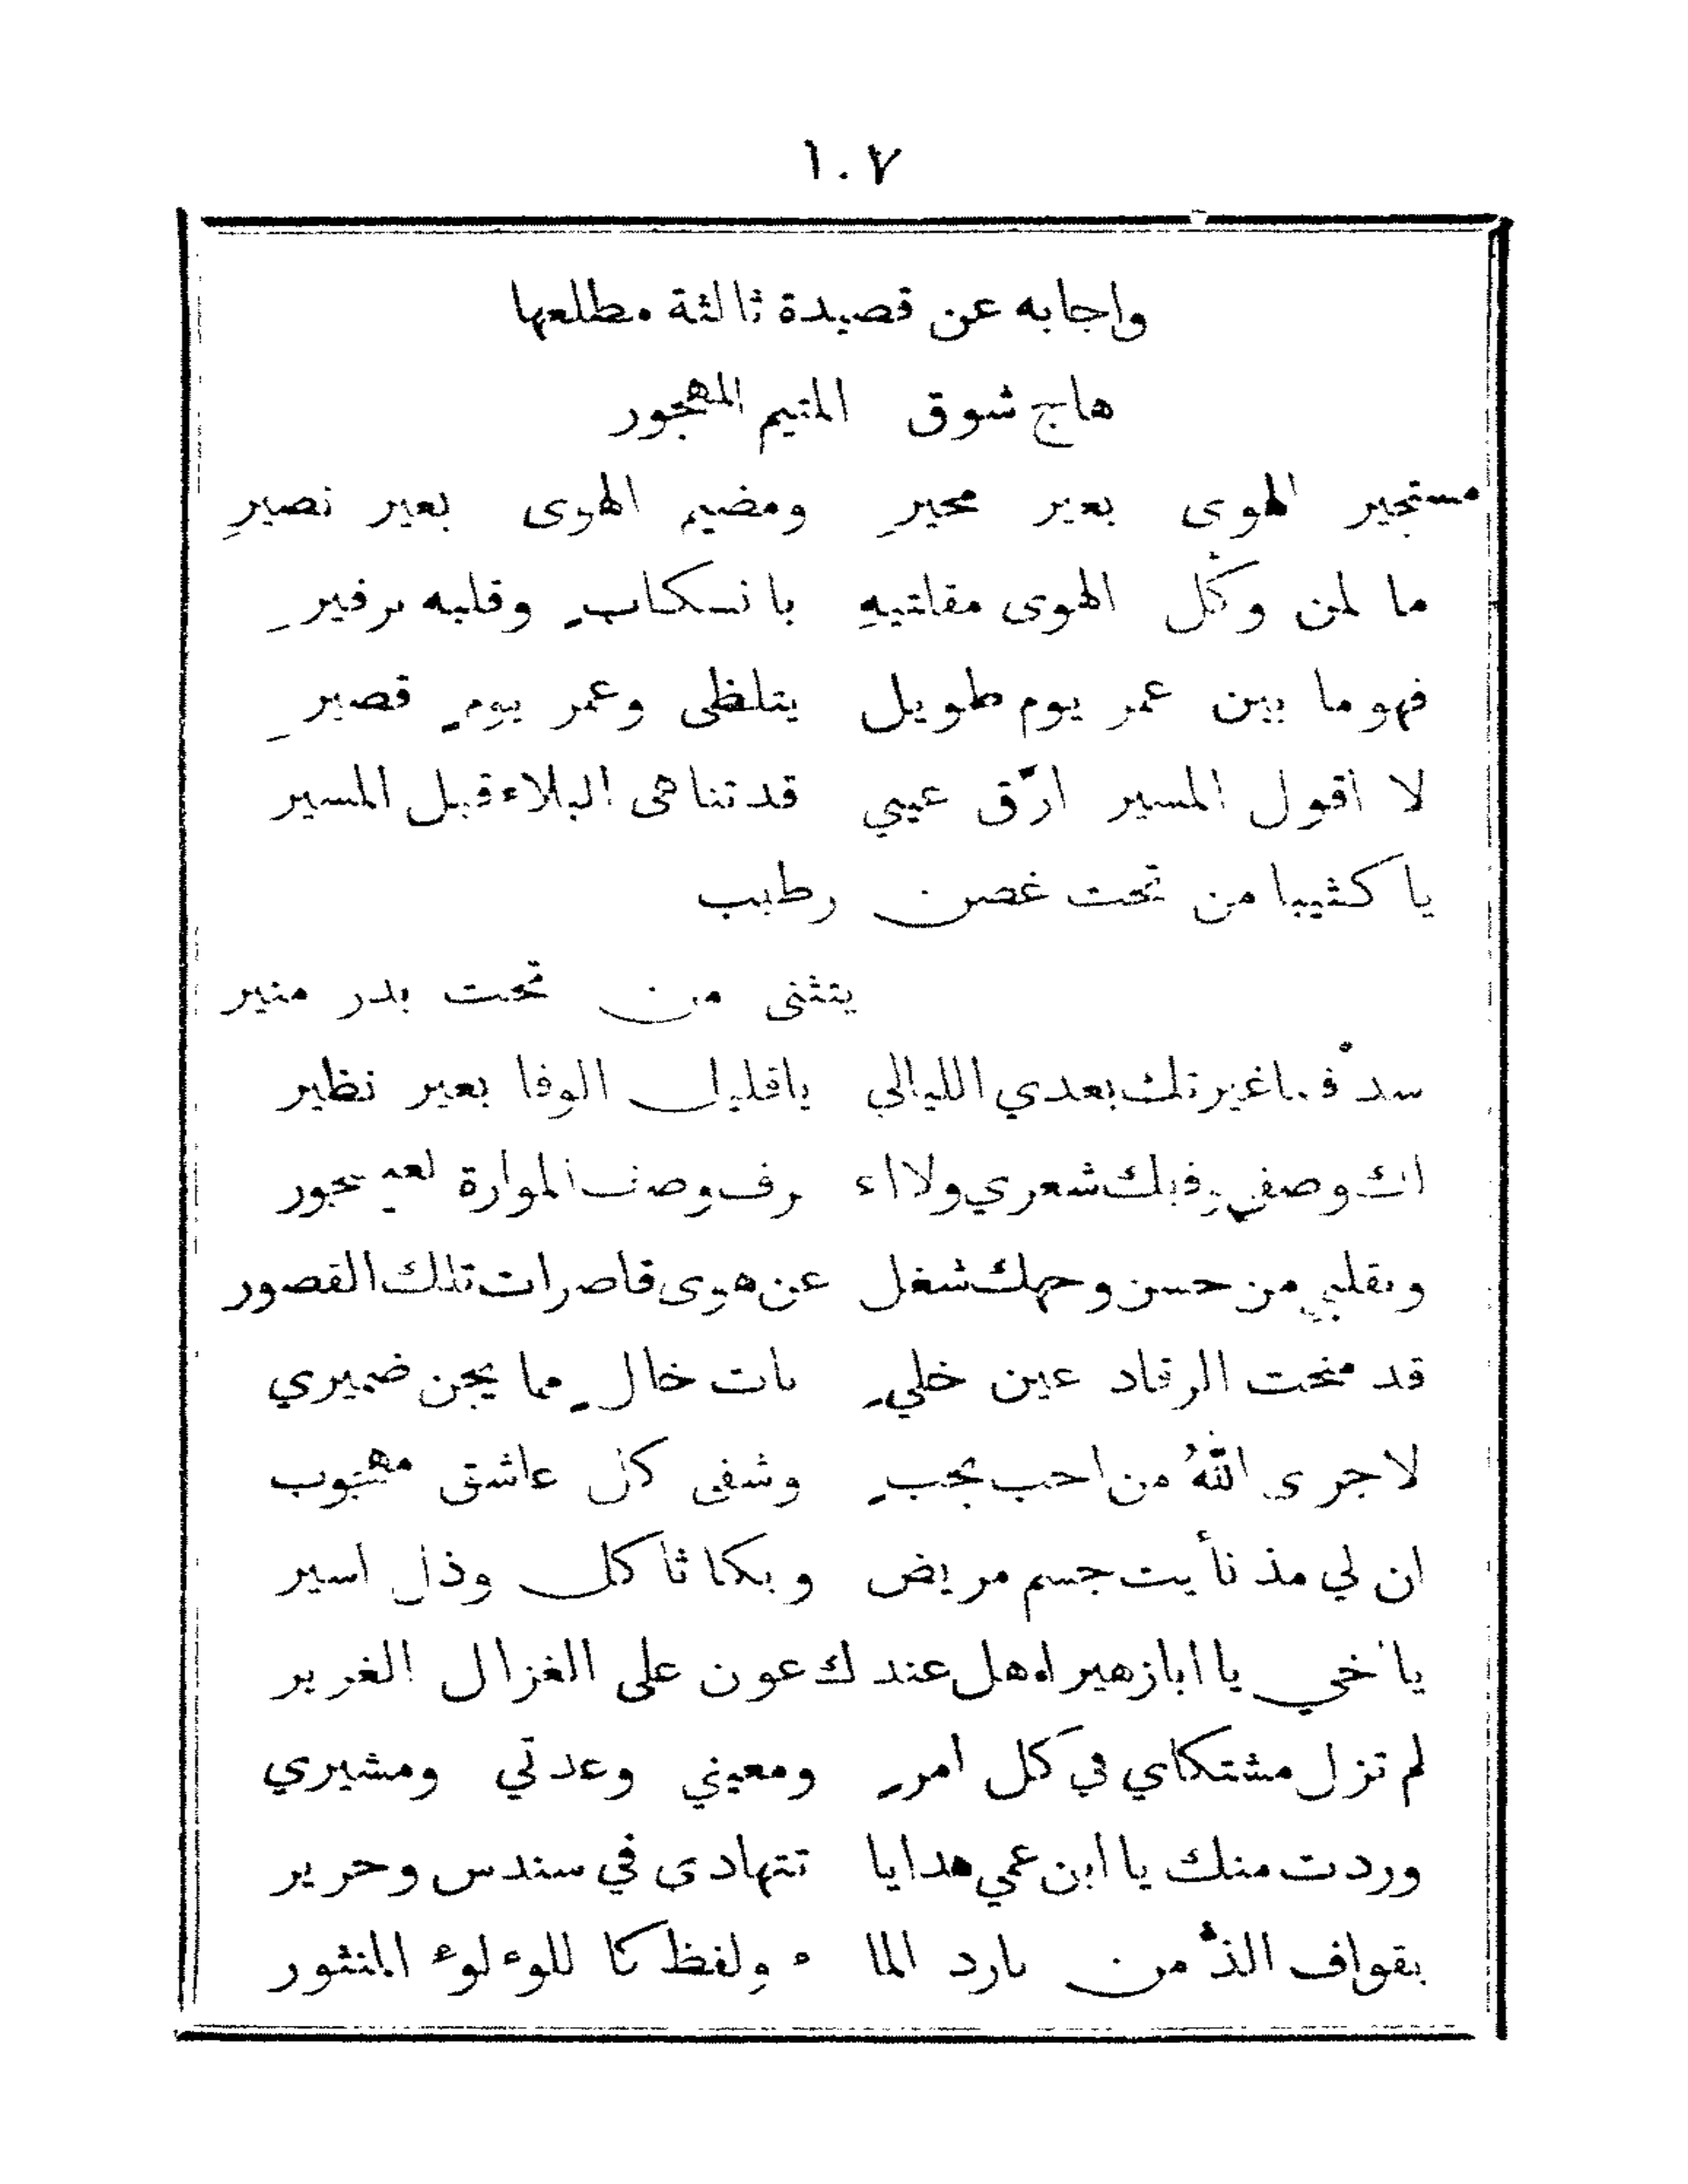 ١٠٧
واجابه عن قصيدة ثالثة مطلعها
هاج شوق المتيم المهجور
مستجير الهوى بغير مجيرِ ومضيم الهوى بغير نصيرِ
ما لمن وكّل الهوى مقلتيهِ بانسكابٍ وقلبه بزفيرِ
فهو ما بين عمر يوم طويل يتلظى وعمر يومٍ قصيرِ
لا اقول المسير ارّق عيني قد تناهى البلاء قبل المسير
يا كثيبا من تحت غصن رطيب
يتثنى من تحت بدر منير
غيرتك بعدي الليالي يا قليل الوفا بغير نظير
وصفي وفيك شعري ولا اء رف وصف الموارة
وبقلبي من حسن وجهك شغل عن هوى قاصرات تلك القصور
قد منحت الرقاد عين خليٍ بات خالٍ مما يجن ضميري
لا جرى اللهُ من احب بحبٍ وشفى كل عاشق
ان لي مذ نأيت جسم مريض وبكا ثاكل وذل اسير
يا اخي يا ابا زهير اهل عندك عون على الغزال الغرير
لم تزل مشتكاي في كل امرٍ ومعيني وعدتي ومشيري
وردت منك يا ابن عمي هدايا تتهادى في سندس وحرير
بقواف الذّ من بارد الما ء ولفظ كا للوءلوء المنثور